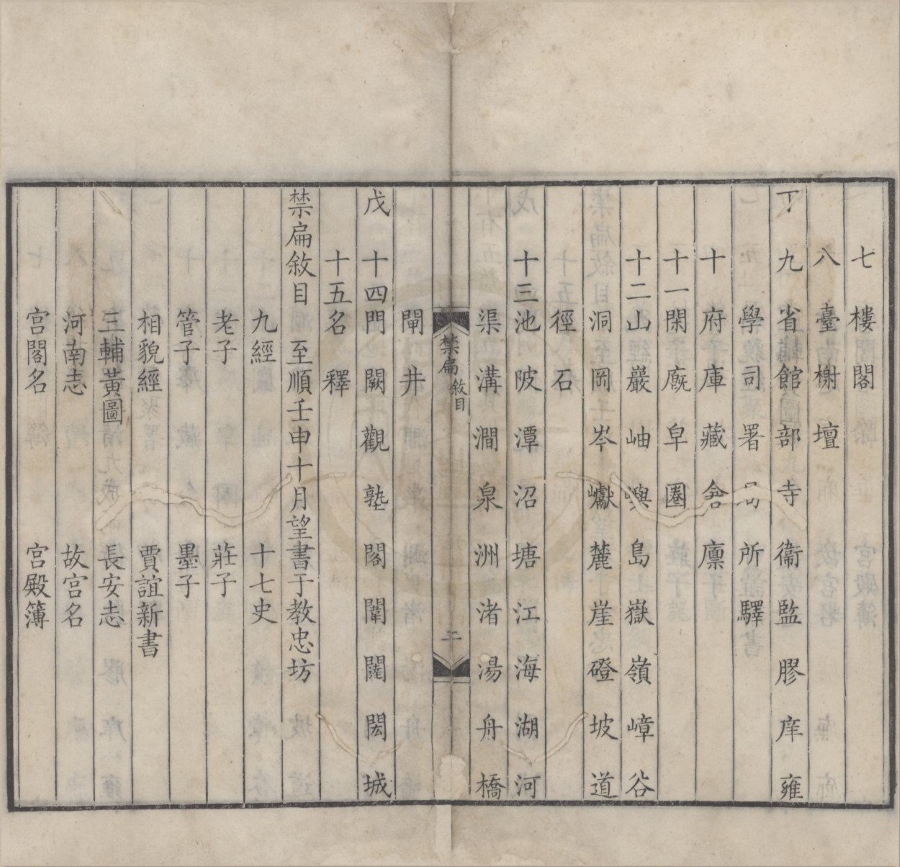 七樓閣
八臺榭壇
丁九省館部寺衞監膠庠雍
學司署局所驛
十府庫藏倉廩
十一閑廐皁圉
十二山巖岫嶼島嶽嶺嶂谷
洞岡岑巘麓崖磴坡道
徑石
十三池陂潭沼塘江海湖河
渠溝澗泉洲渚湯舟橋
禁扁敘目
二
閘井
戊十四門闕觀塾閤闈闥閎城
十五名釋
禁扁敘目至順壬申十月望書于教忠坊
九經 十七史
老子 莊子
管子 墨子
相貌經 賈誼新書
三輔黃圖 長安志
河南志 故宮名
宮閣名 宮殿簿